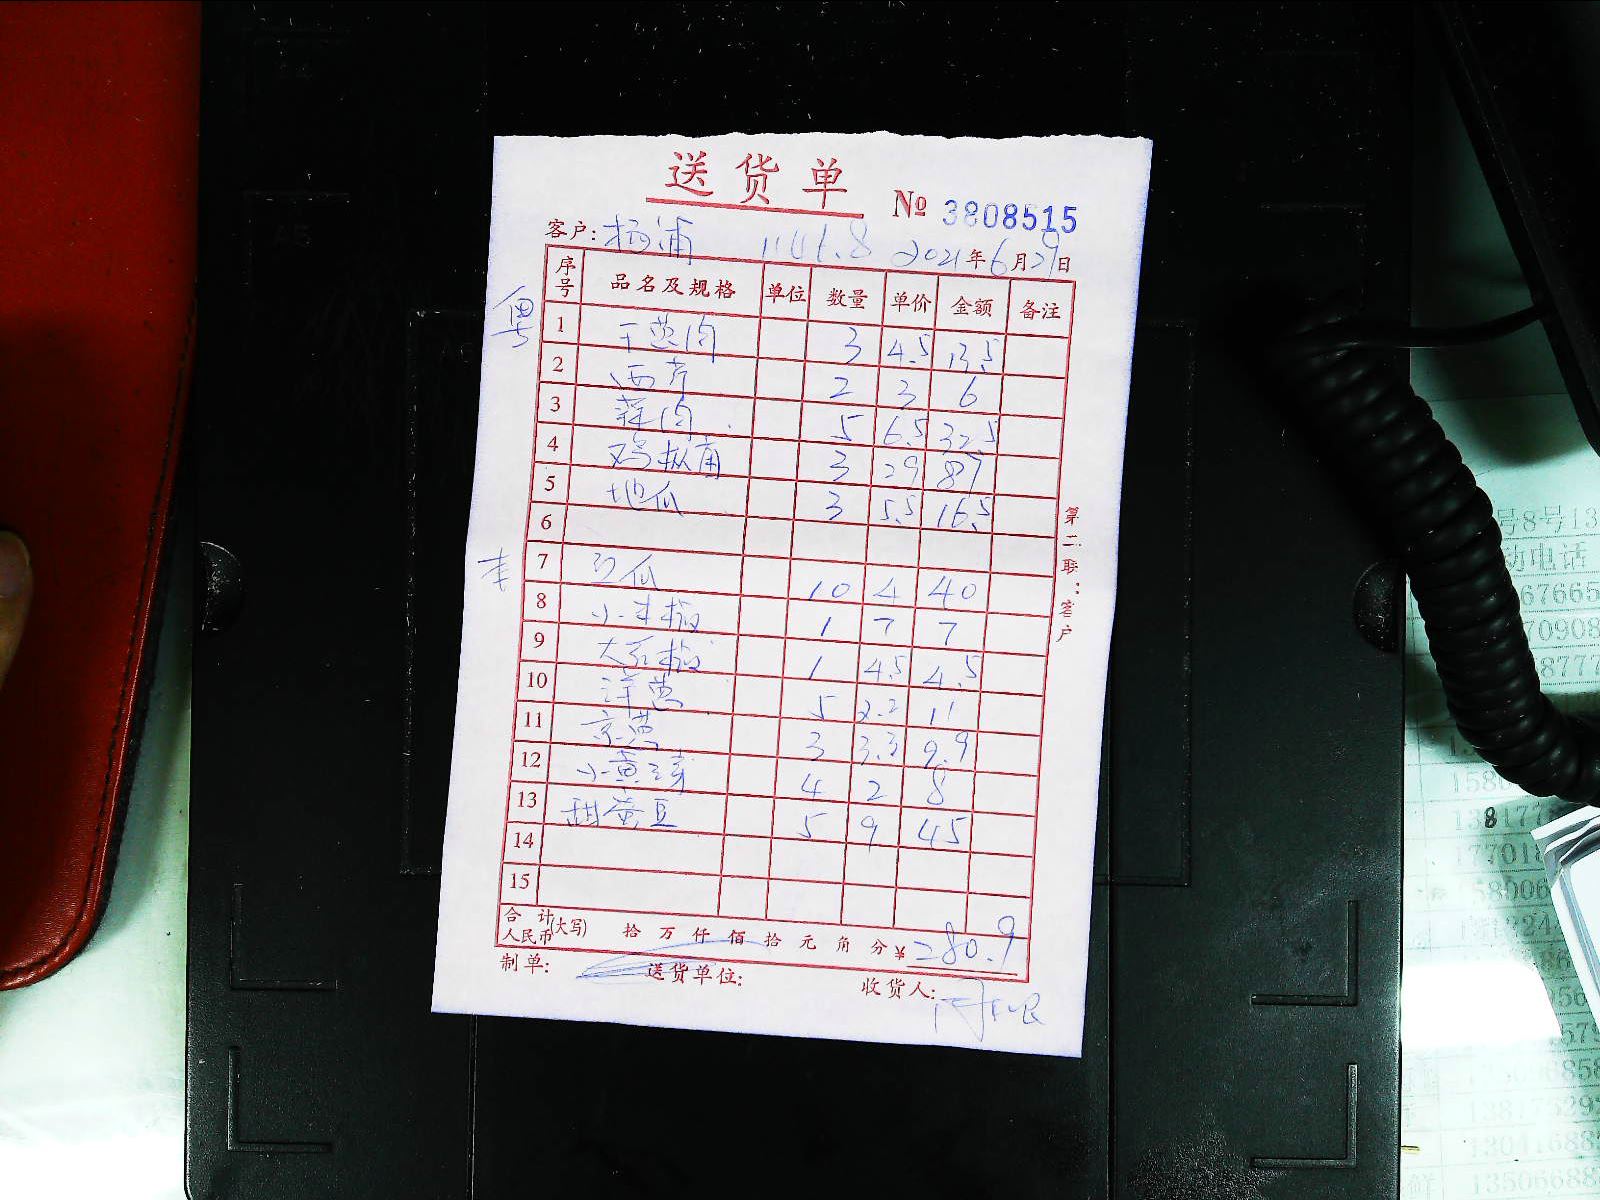 送货单
№ 3808515
客户: 杨浦 1141.8 2021年6月29日
序号 品名及规格 单位 数量 单价 金额 备注
粤
1 干葱肉 3 4.5 13.5
2 西芹 2 3 6
3 蒜肉 5 6.5 32.5
4 鸡枞菌 3 29 87
5 地瓜 3 5.5 16.5
6
7 卫瓜 10 4 40
8 小米椒 1 7 7
9 大红椒 1 4.5 4.5
10 洋葱 5 2.2 11
11 京葱 3 3.3 9.9
12 小黄芽 4 2 8
13 甜蜜豆 5 9 45
14
15
合计人民币(大写) 拾 万 仟 佰 拾 元 角 分 ¥ 280.9
制单: 送货单位: 收货人:
第二联:客户
号8号13
动电话
67665
70908
8777